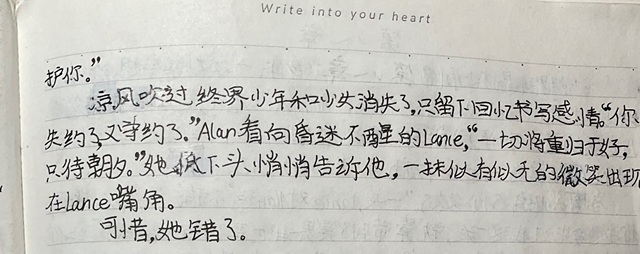 Write into your heart
护你。”
凉风吹过终界少年和少女消失了,只留下回忆书写感情。“你
失约了,又守约了。”Alan看向昏迷不醒的Lance,“一切将重归于好,
只待朝夕。”她低下头,悄悄告诉他,一抹似有似无的微笑出现
在Lance嘴角。
可惜,她错了。